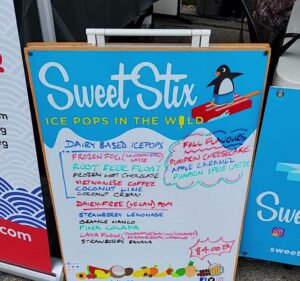 Sweet Stix
ICE POPS IN THE WILD
DAIRY BASED ICEPOPS
FROZEN FOG (LONDON FOG LATTE)
ROOT BEER FLOAT
FROZEN HOT CHOCOLATE
VIETNAMESE COFFEE
COCONUT LIME
COCONUT CREAM
DAIRY-FREE (VEGAN) POPS
STRAWBERRY LEMONADE
ORANGE MANGO
PINA COLADA
LAVA FLOW
STRAWBERRY BANANA
FALL FLAVOURS
PUMPKIN CHEESECAKE
APPLE CARAMEL
PUMPKIN SPICE LATTE
$4.00
Swe
.com